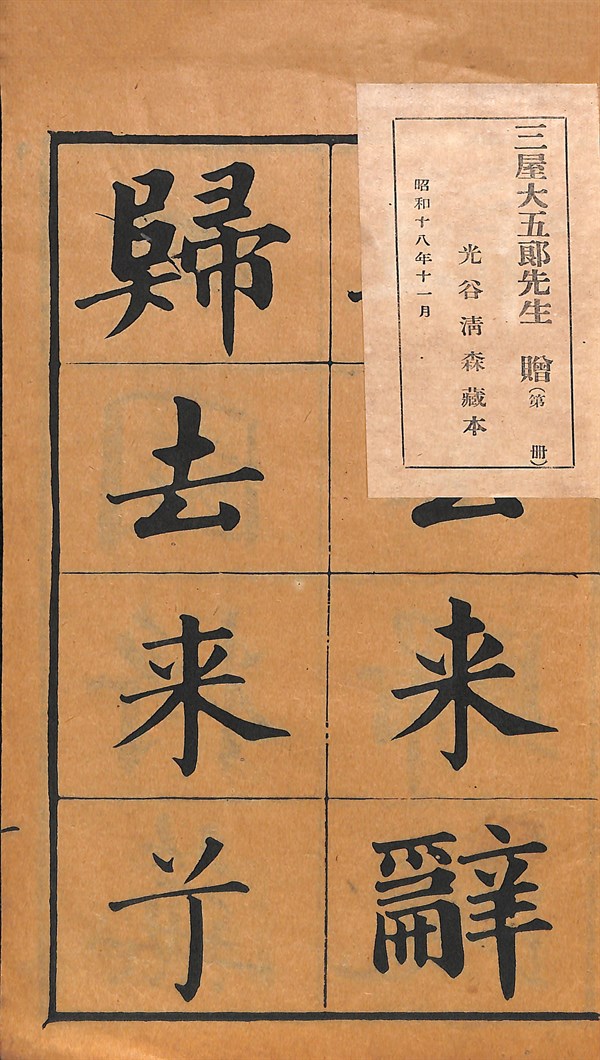 三屋大五郎先生 贈(第 冊)
光谷清森藏本
昭和十八年十一月
来辭
歸去来兮